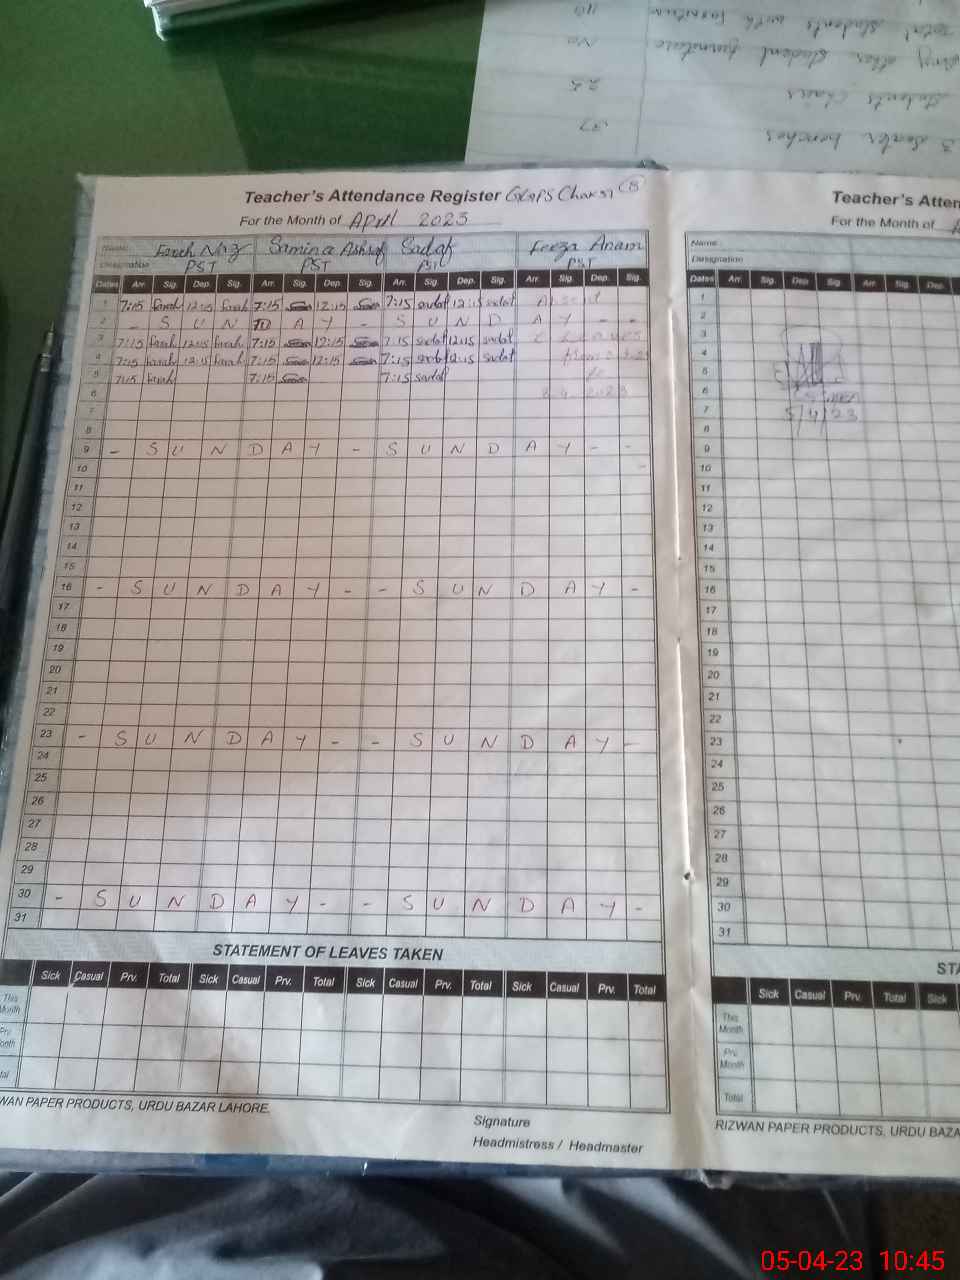 total students with furniture 110
any other student furniture No
students chairs 22
3 seater benches 37
Teacher's Attendance Register GGPS Chak51 (B)
For the Month of April 2023
Name: Farah Naz Samina Ashraf Sadaf Feeza Anam
Designation PST PST PST PST
Dates Arr. Sig. Dep. Sig. Arr. Sig. Dep. Sig. Arr. Sig. Dep. Sig. Arr. Sig. Dep. Sig.
1 7:15 farah 12:15 farah 7:15 12:15 7:15 sadaf 12:15 sadaf Absent
2 - S U N D A Y - S U N D A Y - -
3 7:15 farah 12:15 farah 7:15 12:15 7:15 sadaf 12:15 sadaf Leaves
4 7:15 farah 12:15 farah 7:15 12:15 7:15 sadaf 12:15 sadaf from
5 7:15 farah 7:15 7:15 sadaf to
6 2023
7
8
9 - S U N D A Y - S U N D A Y - -
10
11
12
13
14
15
16 - S U N D A Y - - S U N D A Y -
17
18
19
20
21
22
23 - S U N D A Y - - S U N D A Y -
24
25
26
27
28
29
30 - S U N D A Y - - S U N D A Y -
31
STATEMENT OF LEAVES TAKEN
Sick Casual Prv. Total Sick Casual Prv. Total Sick Casual Prv. Total Sick Casual Prv. Total
This Month
Prv. Month
Total
WAN PAPER PRODUCTS, URDU BAZAR LAHORE.
Signature
Headmistress / Headmaster
Teacher's Atten
For the Month of
Name
Designation
Dates Arr. Sig. Dep Sig. Arr. Sig. Dep.
1
2
3
4
5
6
7 5/4/23
8
9
10
11
12
13
14
15
16
17
18
19
20
21
22
23
24
25
26
27
28
29
30
31
STA
Sick Casual Prv. Total Sick
This Month
Prv. Month
Total
RIZWAN PAPER PRODUCTS, URDU BAZA
05-04-23 10:45